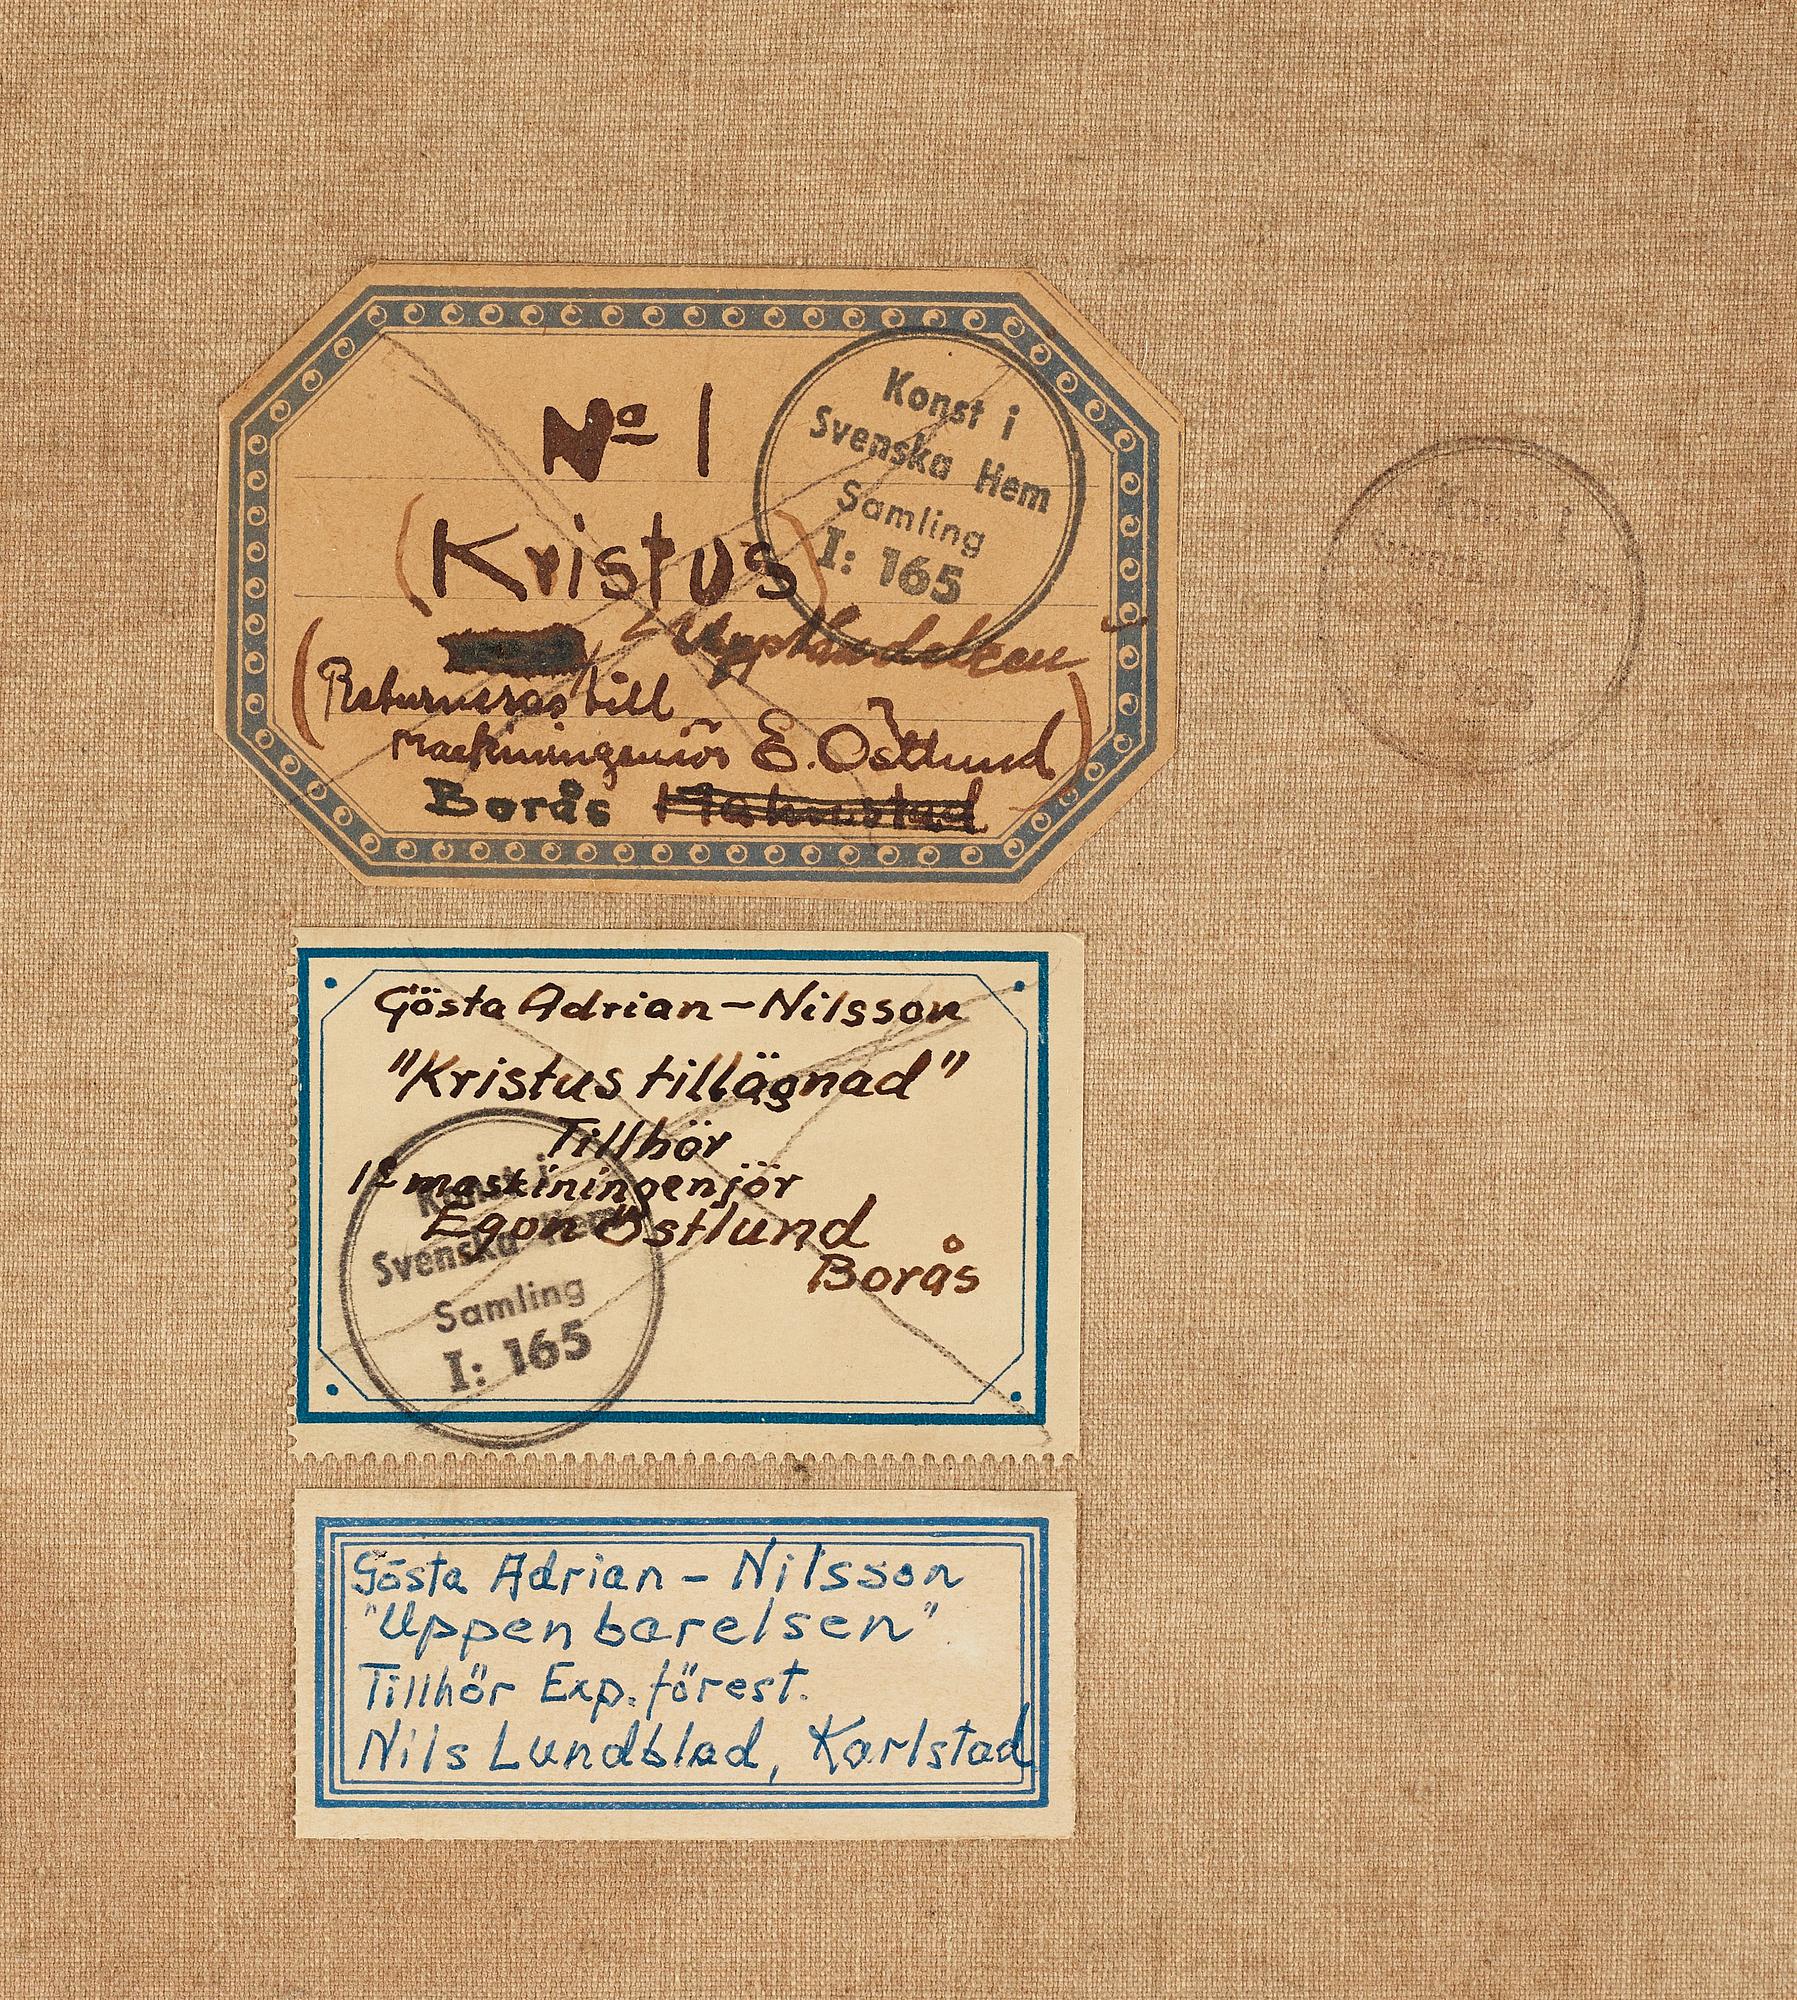 Nº 1
(Kristus)
(Returneras till
maskiningeniör E. Östlund)
Borås
Konst i
Svenska Hem
Samling
I: 165
Konst i
Gösta Adrian-Nilsson
"Kristus tillägnad"
Tillhör
1e maskiningenjör
Egon Östlund
Borås
Konst i
Svenska Hem
Samling
I: 165
Gösta Adrian - Nilsson
"Uppenbarelsen"
Tillhör Exp. förest.
Nils Lundblad, Karlstad